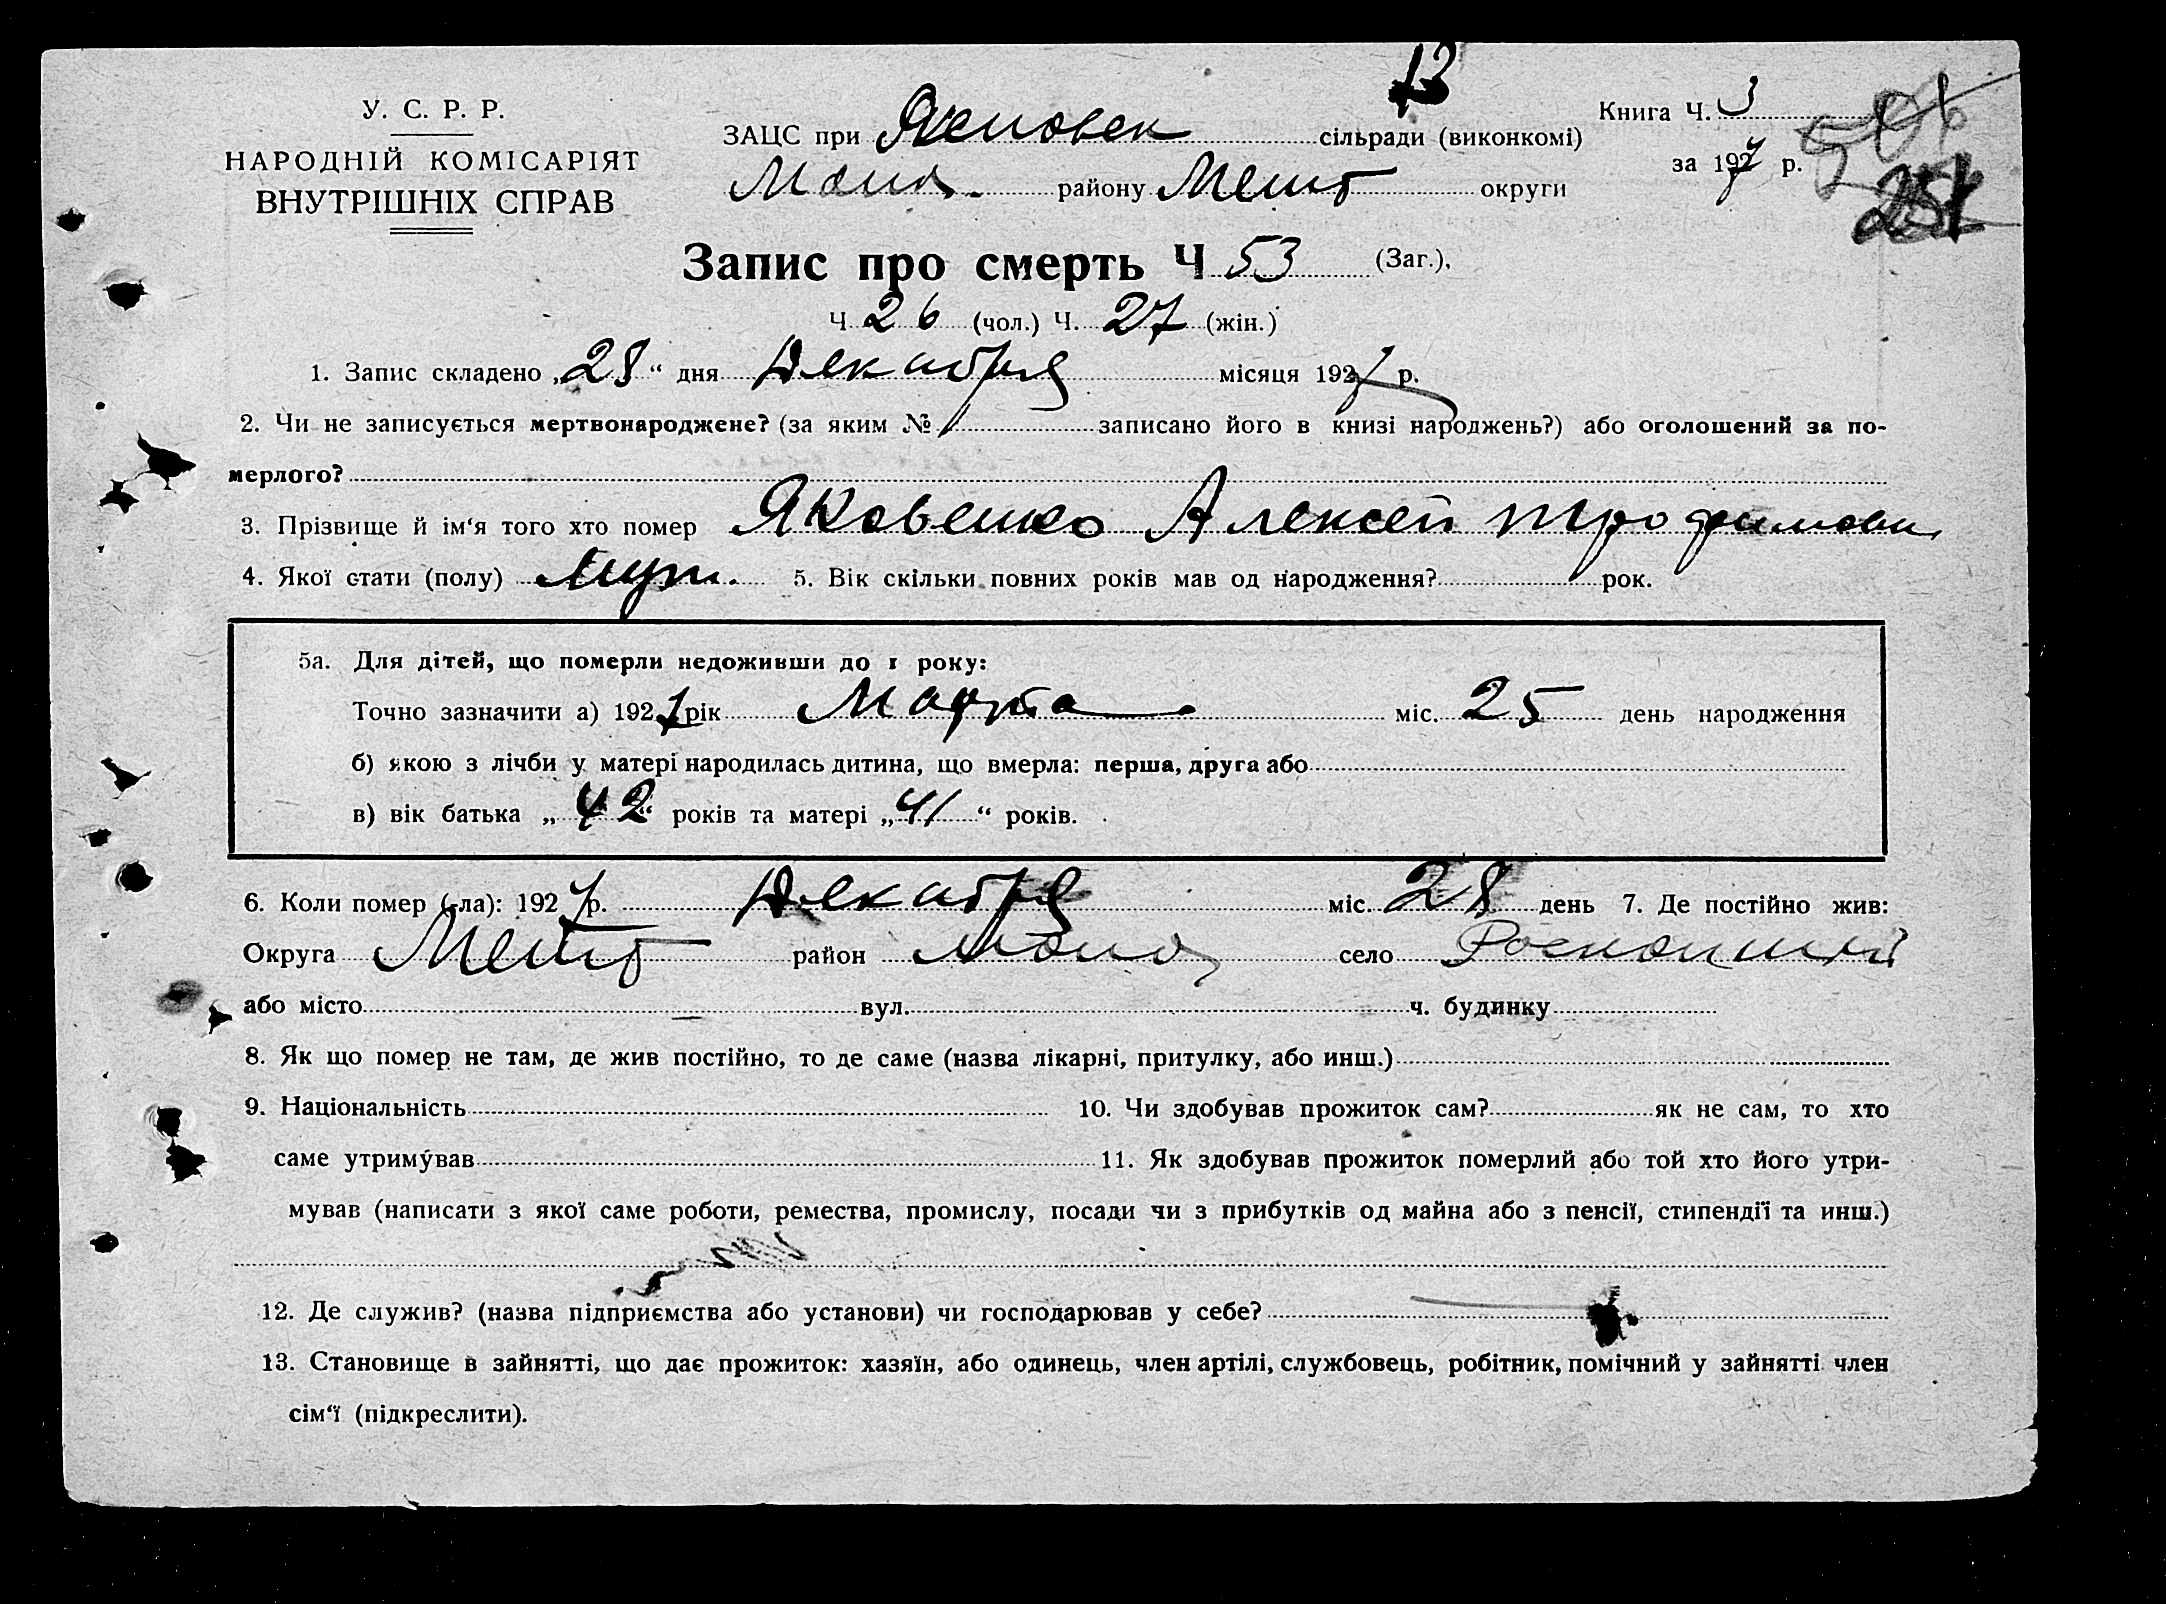 13
У. С. Р. Р.
НАРОДНІЙ КОМІСАРІЯТ
ВНУТРІШНІХ СПРАВ
ЗАЦС при сільради (виконкомі)
району округи
Книга Ч. 3
за 1927 р.
251
Запис про смерть Ч 53 (Заг.),
Ч 26 (чол.) Ч. 27 (жін.)
1. Запис складено „28“ дня Декабря місяця 1927 р.
2. Чи не записується мертвонароджене? (за яким № записано його в книзі народжень?) або оголошений за по-
мерлого?
3. Прізвище й ім‘я того хто помер Яковенко Алексей Трофимови
4. Якої стати (полу) Муж. 5. Вік скільки повних років мав од народження? рок.
5а. Для дітей, що померли недоживши до 1 року:
Точно зазначити а) 1927 рік Марта міс. 25 день народження
б) якою з лічби у матері народилась дитина, що вмерла: перша, друга або
в) вік батька „42“ років та матері „41“ років.
6. Коли помер (-ла): 1927 р. Декабря міс. 28 день 7. Де постійно жив:
Округа район село
або місто вул. ч. будинку
8. Як що помер не там, де жив постійно, то де саме (назва лікарні, притулку, або инш.)
9. Національність 10. Чи здобував прожиток сам? як не сам, то хто
саме утримував 11. Як здобував прожиток померлий або той хто його утри-
мував (написати з якої саме роботи, ремества, промислу, посади чи з прибутків од майна або з пенсії, стипендії та инш.)
12. Де служив? (назва підприємства або установи) чи господарював у себе?
13. Становище в зайнятті, що дає прожиток: хазяїн, або одинець, член артілі, службовець, робітник, помічний у зайнятті член
сім‘ї (підкреслити).